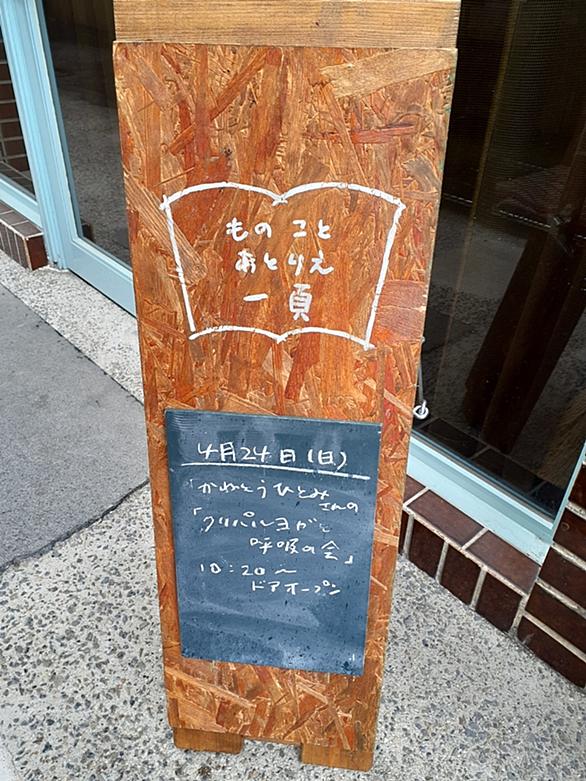 ものこと
あとりえ
一頁
4月24日(日)
「かわとうひとみ
さんの
「クリパルヨガと
呼吸の会」
10:20〜
ドアオープン